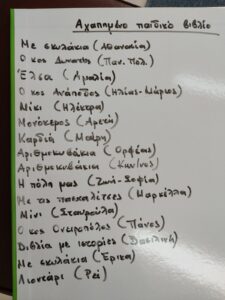 Αγαπημένο παιδικό βιβλίο
Με σκυλάκια (Αθανασία)
Ο κος Δυνατός (Παν. Πολ.)
Έλσα (Αμαλία)
Ο κος Ανάποδος (Ηλίας-Μάριος)
Μίκι (Ηλέκτρα)
Μονόκερος (Αρετή)
Καρδιά (Μαίρη)
Αριθμοκυβάκια (Ορφέας)
Αριθμοκυβάκια (Κων/νος)
Η πόλη μας (Ζωή-Σοφία)
Με τις πασχαλίτσες (Μαρκέλλα)
Μίνι (Σταυρούλα)
Ο κος Ονειροπόλος (Πάνος)
Βιβλία με ιστορίες (Βασιλική)
Με σκυλάκια (Έρικα)
Λιοντάρι (Ρέι)